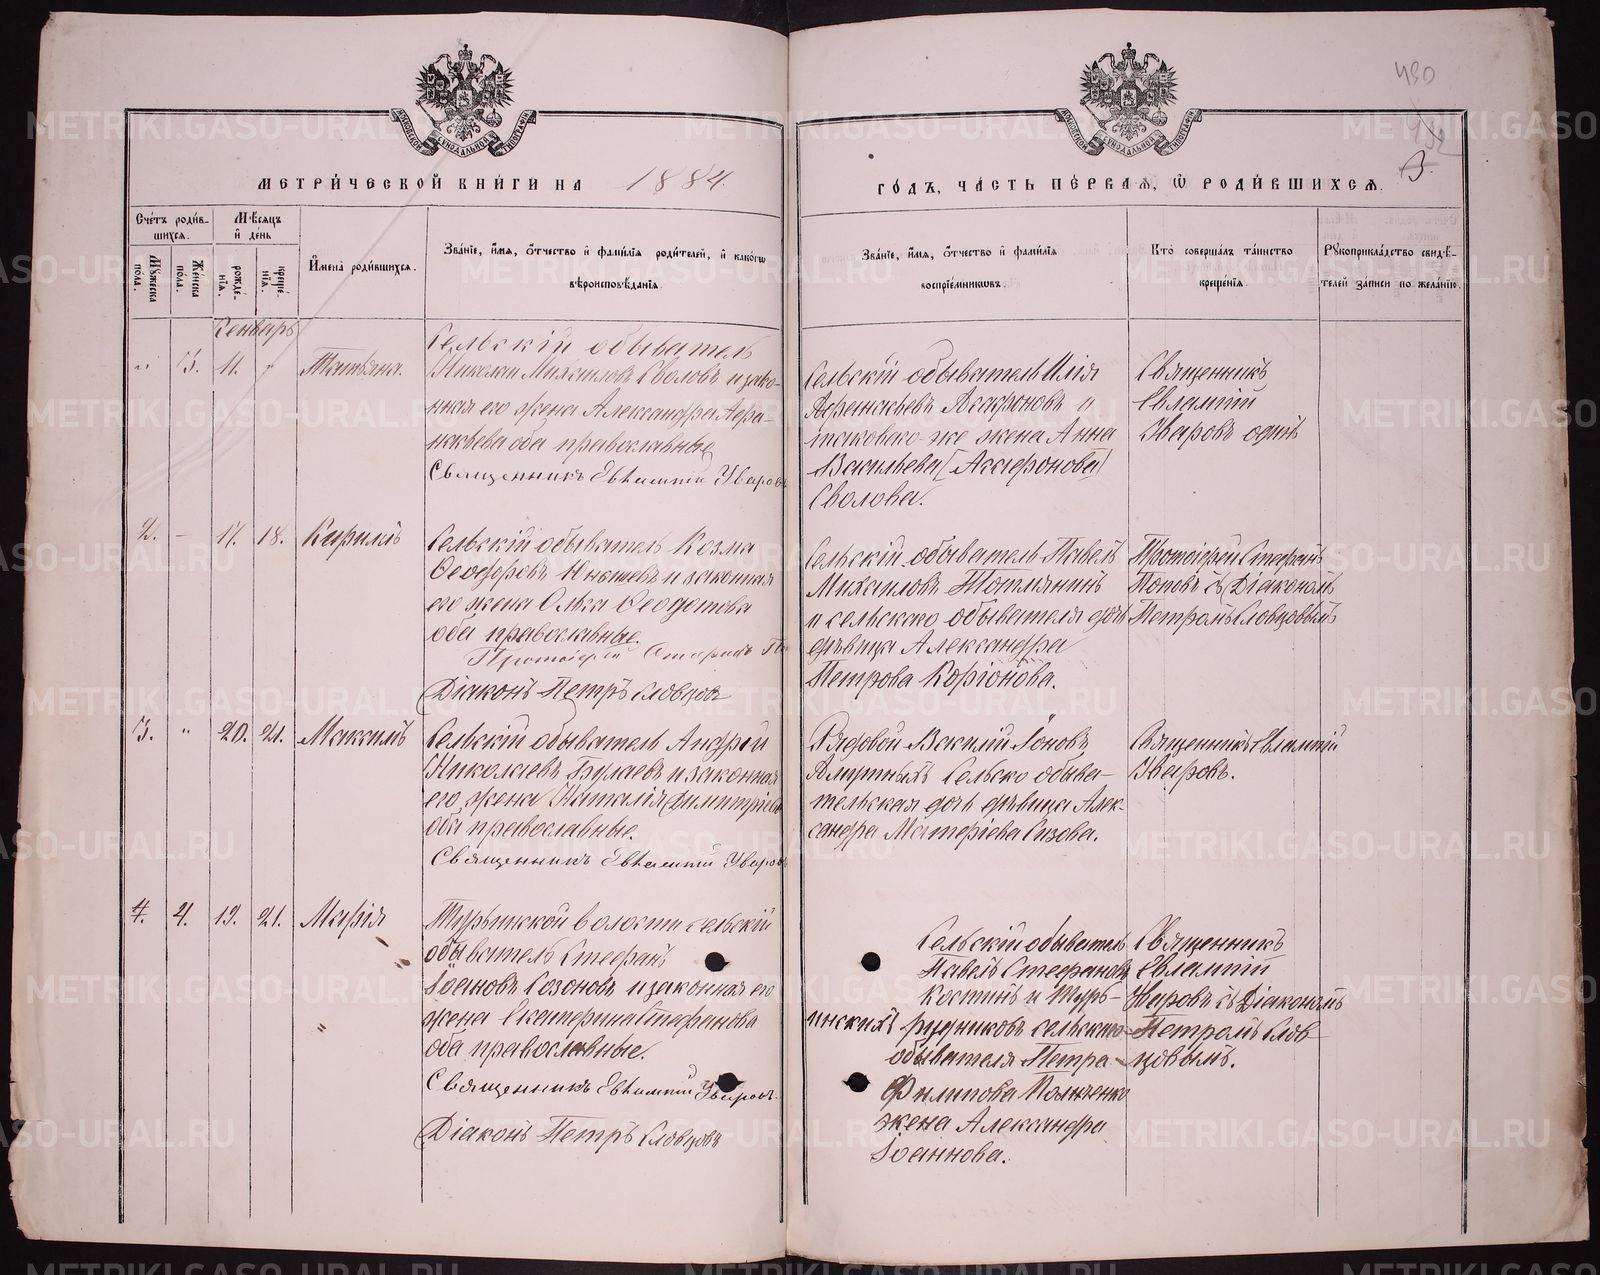 430
3.
МЕТРИ́ЧЕСКОЙ КНИ́ГИ НА 1884.
ГО́ДЪ, ЧА́СТЬ ПЕ́РВАЯ, Ѡ РОДИ́ВШИХСѦ.
Сче́тъ роди́в-
шихсѧ.
Мꙋ́жеска по́ла.
Же́нска по́ла.
Мѣ́сѧцъ и де́нь
рожде́-нїѧ.
креще́-нїѧ.
И҆мена̀ роди́вшихсѧ.
Зва́нїе, и҆́мѧ, ѻ҆́тчество и҆ фами́лїѧ роди́телей, и҆ како́гѡ
вѣроисповѣ́данїѧ.
Зва́нїе, и҆́мѧ, ѻ҆́тчество и҆ фами́лїѧ
воспрїе́мникѡвъ.
Кто̀ соверша́лъ та́инство
креще́нїѧ.
Рꙋкоприкла́дство свидѣ́-
телей за́писи по жела́нїю.
Генварь
" 3. 11. " Татьяна.
Сельскій обыватель
Николай Михаиловъ Своловъ и зако-
нная его жена Александра Афа-
насьева оба православные
Священникъ Евлампій Уваровъ
Сельскій обыватель Илія
Афанасьевъ Агафоновъ и
таковаго-же жена Анна
Васильева (Агафонова)
Сволова.
Священникъ
Евлампій
Уваровъ одинъ
2. – 17. 18. Кириллъ
Сельскій обыватель Козма
Ѳеодоровъ и законная
его жена Ольга Ѳеодотова
оба православные.
Протоіерей Стефанъ По
Діаконъ Петръ Словцовъ
Сельскій обыватель Павелъ
Михаиловъ Тотмянинъ
и сельскаго обывателя дочь
дѣвица Александра
Петрова Коріонова.
Протоіерей Стефанъ
Поповъ съ Діакономъ
Петромъ Словцовымъ
3. " 20. 21. Максимъ
Сельскій обыватель Андрей
Николаевъ Булаевъ и законная
его жена Наталія Димитріева
оба православные.
Священникъ Евлампій Уваровъ
Рядовой Василій Іоновъ
Сельско обыва-
тельская дочь дѣвица Алек-
сандра Матеріева Сизова.
Священникъ Евлампій
Уваровъ.
4. 19. 21. Марія
Турьинской волости сельскій
обыватель Стефанъ
Іоанновъ Созоновъ и законная его
жена Екатерина Стефанова
оба православные.
Священникъ Евлампій Уваровъ
Діаконъ Петръ Словцовъ
Сельскій обыватель
Павелъ Стефановъ
Костинъ и Турь-
инскихъ рудниковъ сельскаго
обывателя Петра
Филипова
жена Александра
Іоаннова.
Священникъ
Евлампій
Уваровъ съ Діакономъ
Петромъ Слов-
цовымъ.
METRIKI.GASO-URAL.RU